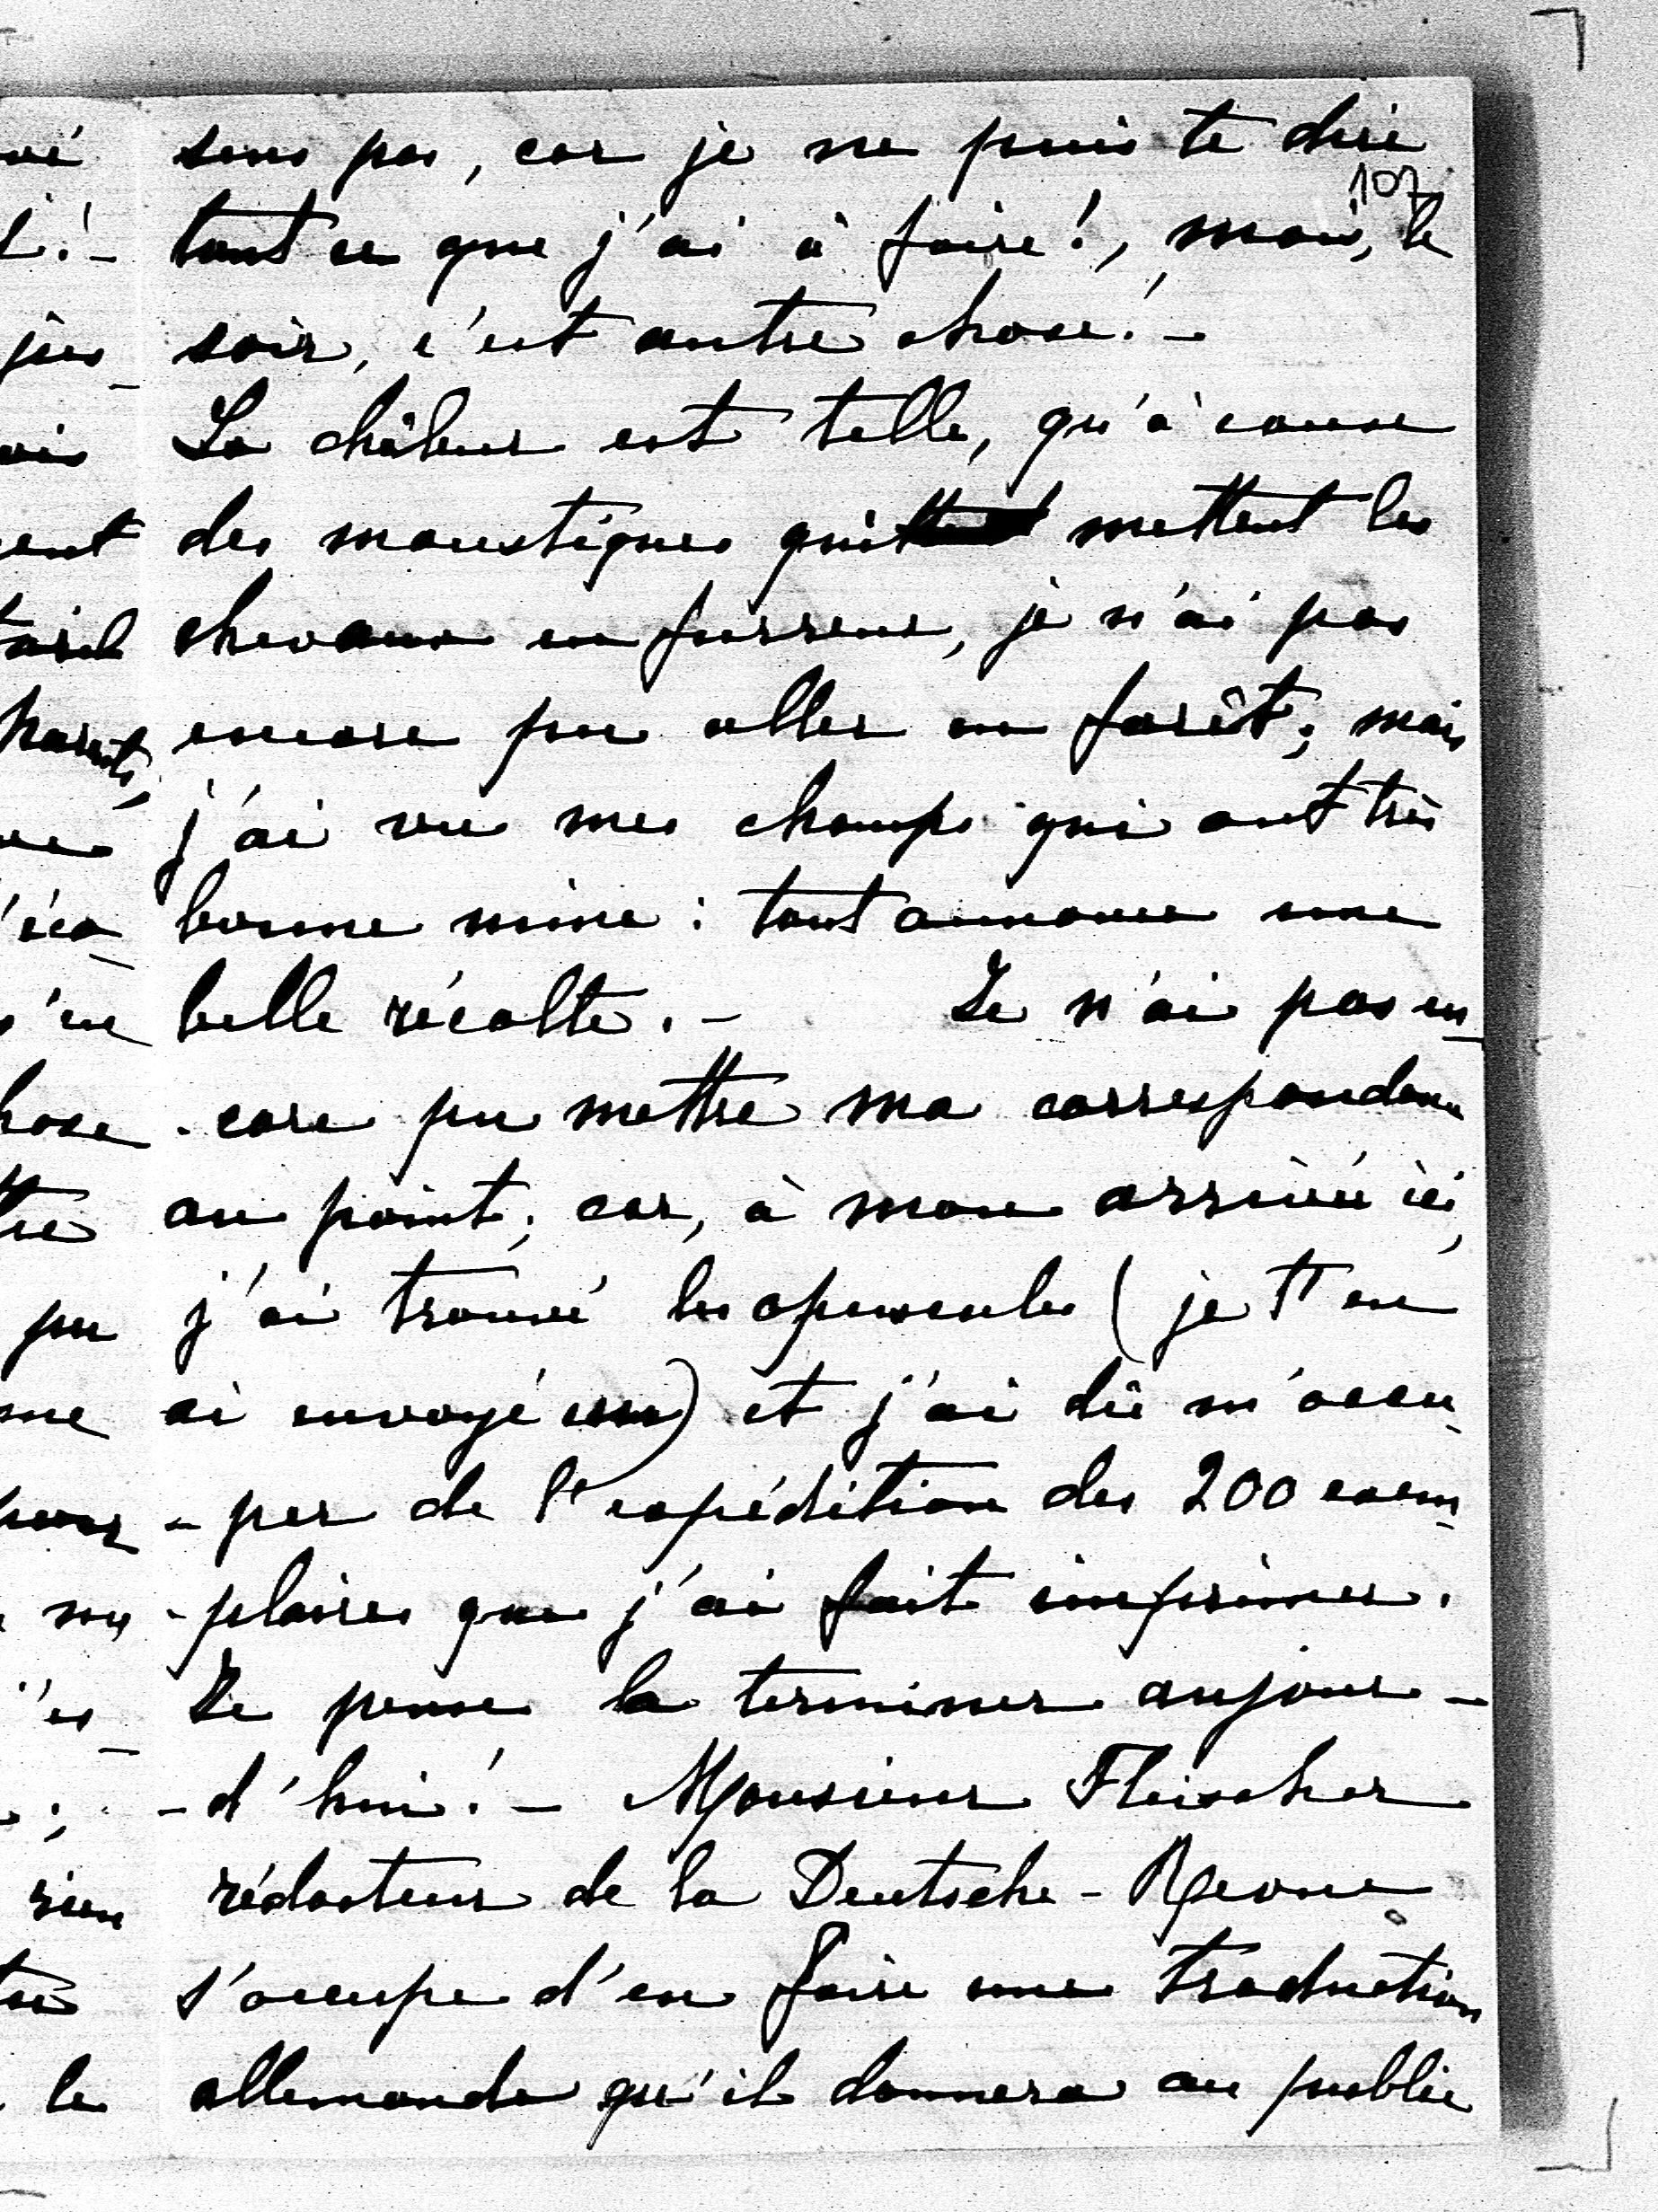 sens pas, car je ne puis te dire
107
tout ce que j'ai à faire!, mais, le
soir, c'est autre chose! -
La châleur est telle, qu'à cause
des moustiques qui mettent les
chevaux en furreur, je n'ai pas
encore pu aller en forêt; mais
j'ai vu mes champs qui ont très
bonne mine : tout annonce une
belle récolte. - Je n'ai pas en-
-core pu mettre ma correspondance
au point; car, à mon arrivée ici,
j'ai trouvé les opuscules (je t'en
ai envoyé un) et j'ai dû m'occu-
-per de l'expédition des 200 exem-
-plaires que j'ai fait imprimer.
Je pense la terminer aujour-
-d'hui! - Monsieur Fleischer
rédacteur de la Deutsche - Revue
s'occupe d'en faire une traduction
allemande qu'il donnera au public